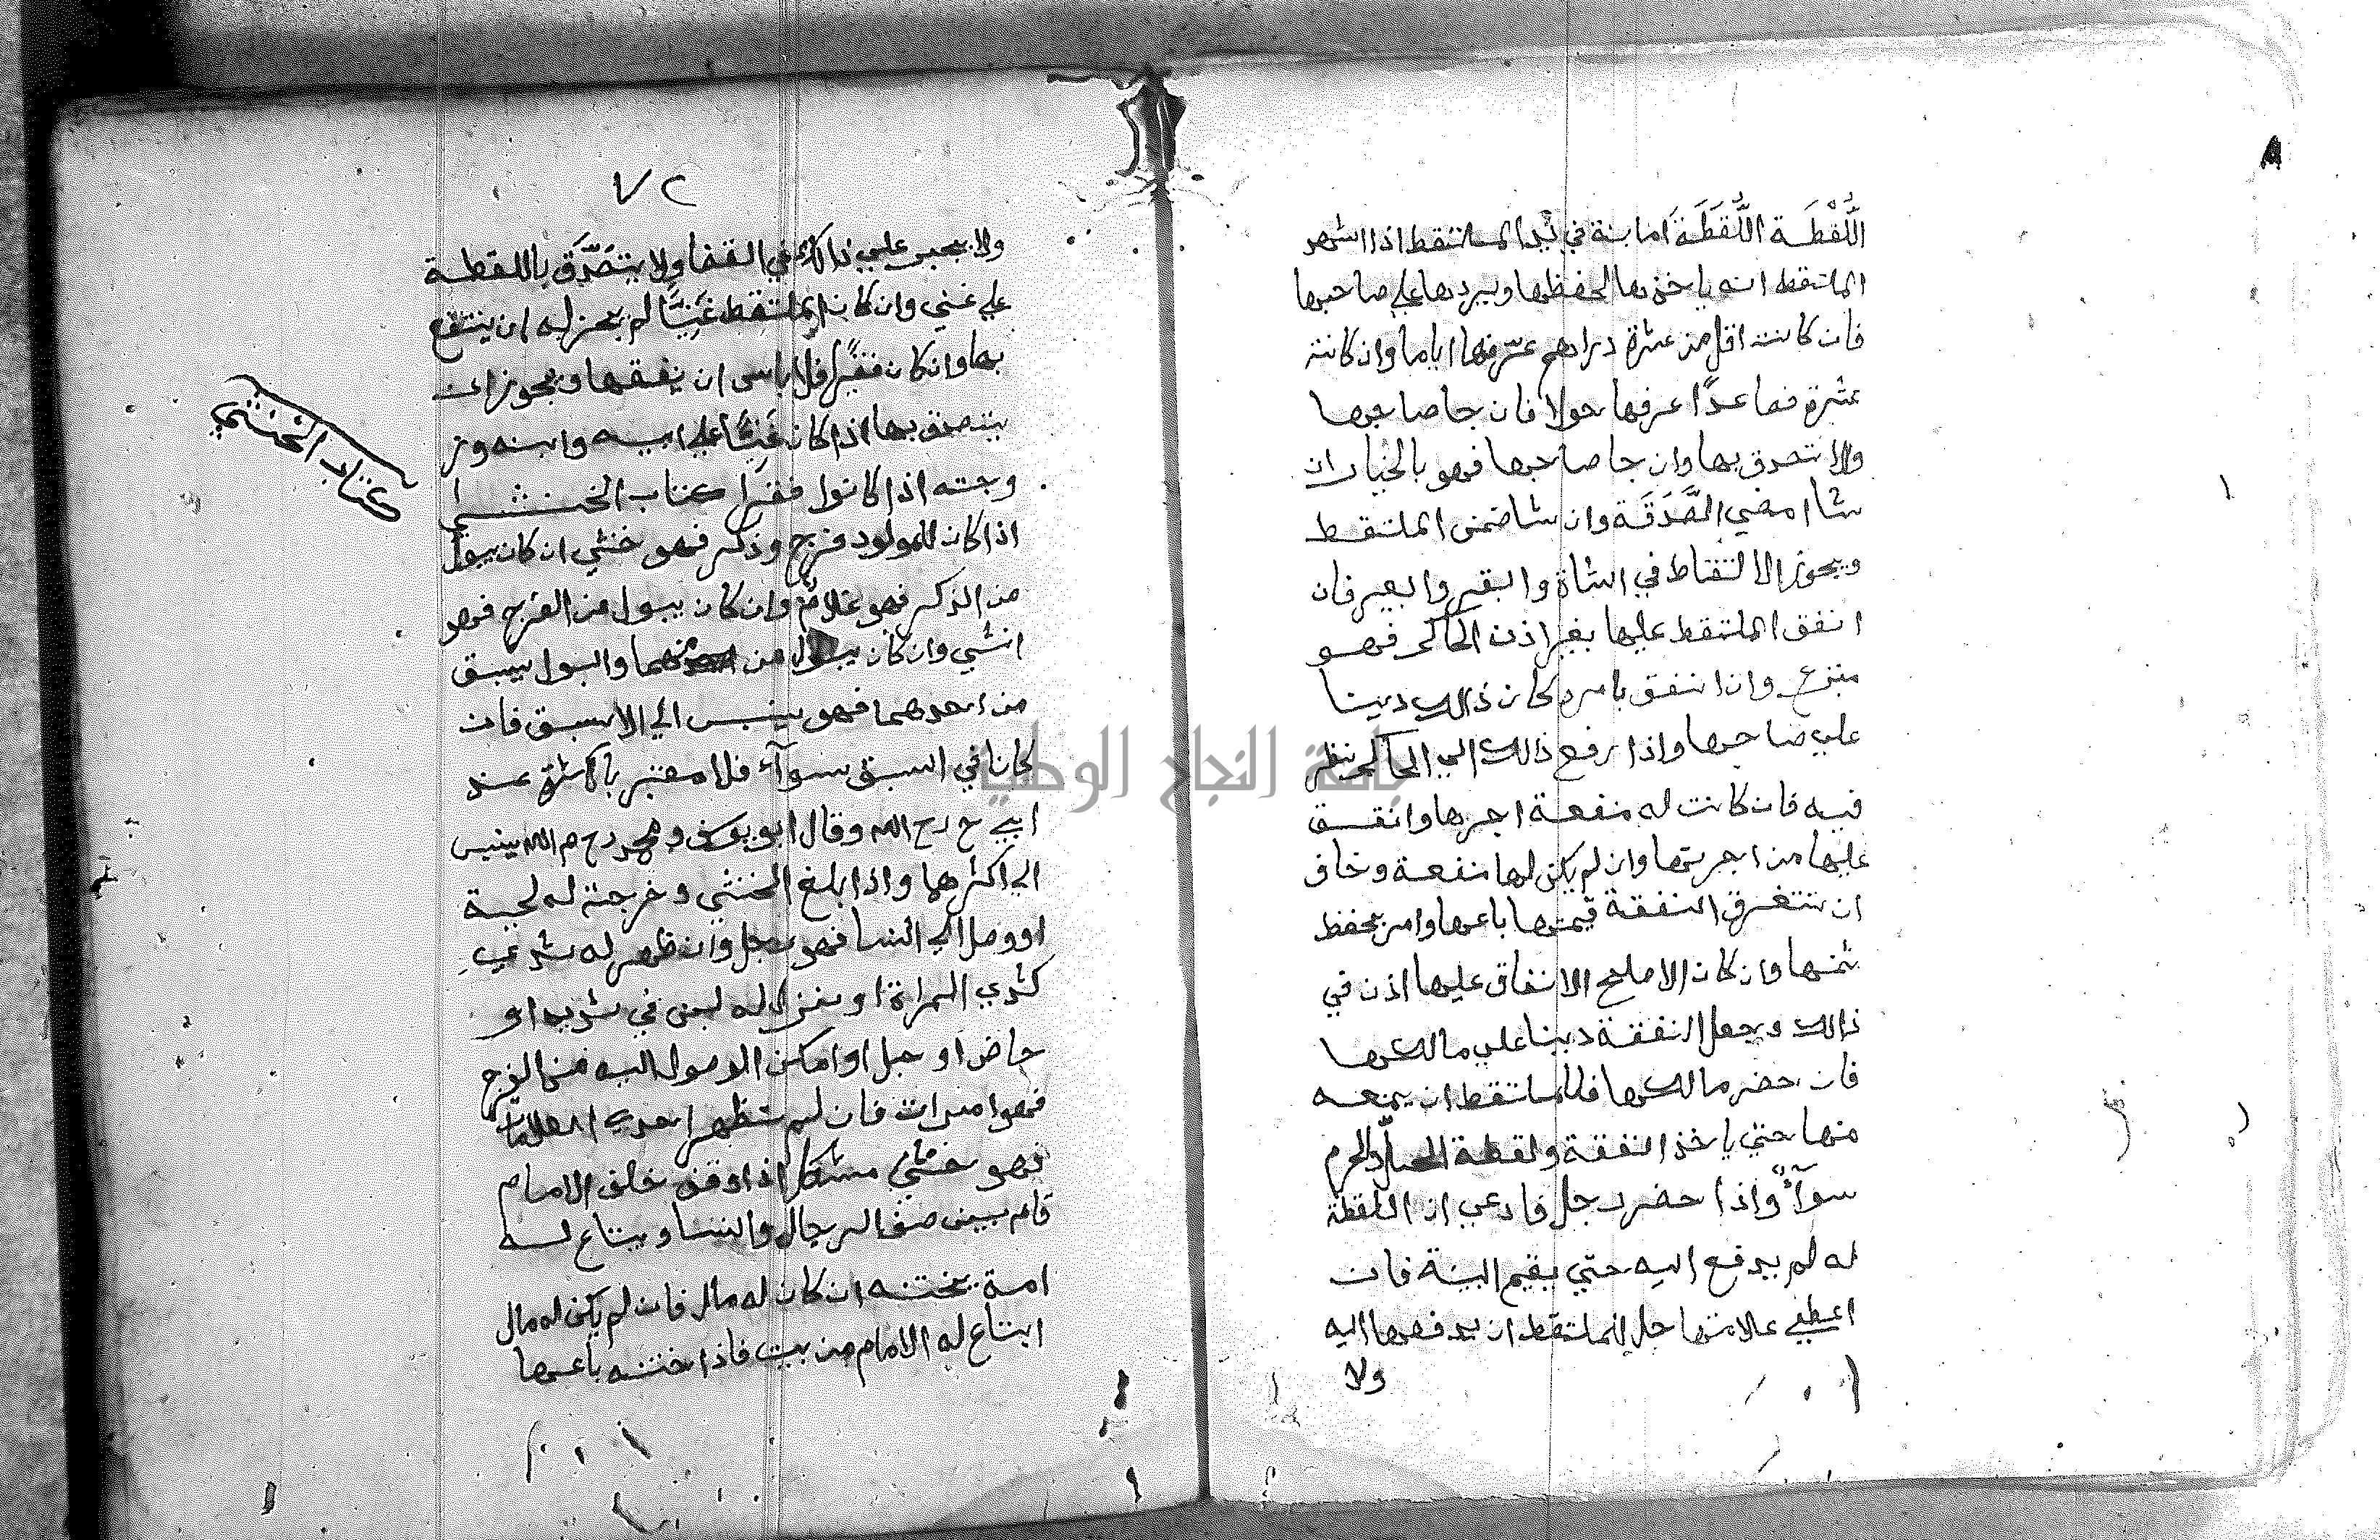 اللُّقْطَة اللُّقَطَةَ امانة في يد الملتقط اذا اشهد
الملتقط انه ياخذها لحفظها ويردها علي صاحبها
فان كانت اقل من عشرة دراهم عرّفها اياما وان كانت
عشرة فصاعدًا عرفها حولا فان جا صاحبها
والا تصدق بها وان جا صاحبها فهو بالخيار ان
شا امضي الصَّدَقَة وان شا ضمن الملتقط
ويجوز الالتقاط في الشاة والبقر والبعير فان
انفق الملتقط عليها بغير اذن الحاكم فهو
متبرع وان انفق بامره كان ذالك دينا
علي صاحبها واذا رفع ذالك الي الحاكم ينظر
فيه فان كانت له منفعة اجرها وانفق
عليها من اجرتها وان لم يكن لها منفعة وخاف
ان تتغرق النفقة قيمتها باعها وامر بحفظ
ثمنها وان كان الاصلح الانفاق عليها اذن في
ذالك وجعل النفقة دينا علي مالكها
فان حضر مالكها فللملتقط ان يمنعه
منها حتي ياخذ النفقة ولقطة الحلّ والحرم
سوآءً واذا حضر رجل فادعي ان اللقطة
له لم يدفع اليه حتي يقيم البينة فان
اعطي علامتها حل للملتقط ان يدفعها اليه
ولا
٧٢
ولا يجبر علي ذالك في القضا ولا يتصَدَّق باللقطة
علي غني وان كان الملتقط غنيًّا لم يجز له ان ينتفع
بها وان كان فقيرًا فلا باس ان ينفقها ويجوز ان
يتصدق بها اذا كان غنيًّا علي ابيه وابنه وز
وجته اذا كانوا فقرا كتاب الخنثي
كتاب الخنثي
اذا كان للمولود فرج وذكر فهو خنثي ان كان يبول
من الذكر فهو غلامٌ وان كان يبول من الفرج فهو
انثي وان كان يبول من منهما والبول يسبق
من احدهما فهو ينسب الي الاسبق فان
كانا في السبق سوآء فلا معتبر بالكثرة عند
ابي ح رح الله وقال ابو يوسف ومحمد رحهم الله ينسب
الي اكثرهما واذا بلغ الخنثي وخرجت له لحية
او وصل الي النسا فهو رجل وان ظهر له ثدي
كثدي المراة او نزل له لبن في ثديه او
حاض او حبل او امكن الوصول اليه من الفرج
فهو امرات فان لم تظهر احدي العلامات
فهو خنثي مشكل اذا وقف خلف الامام
قام بين صف الرجال والنسا ويبتاع له
امة تختنه ان كان له مال فان لم يكن له مال
ابتاع له الامام من بيت فاذا ختنه باعها
جامعة النجاح الوطنية